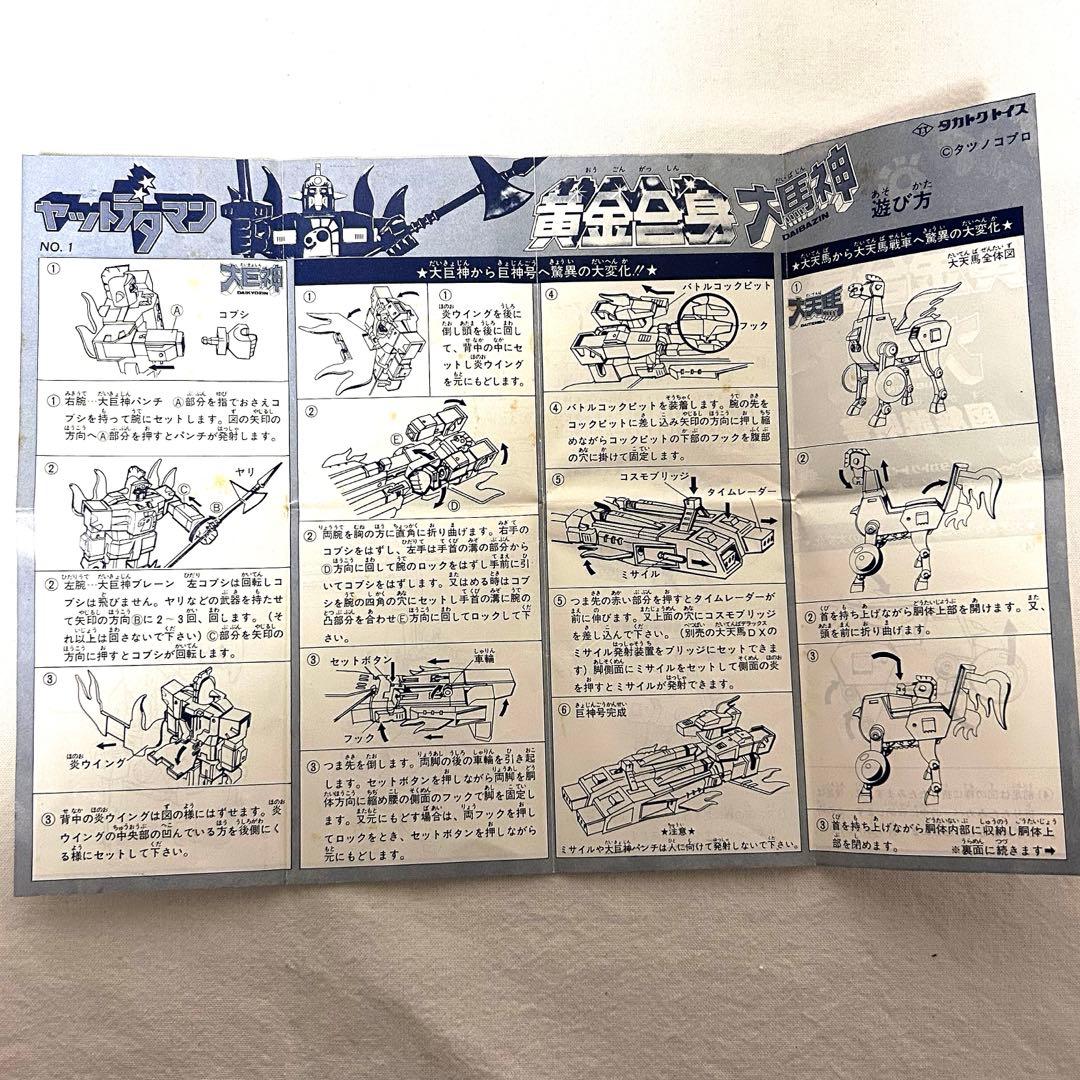 タカトクトイス
©タツノコプロ
ヤットデタマン
NO. 1
おうごんがっしん
黄金合身
だいばじん
大馬神
DAIBAZIN
あそ かた
遊び方
①
だいきょじん
大巨神
DAIKYOZIN
Ⓐ
コブシ
①右腕…大巨神パンチ Ⓐ部分を指でおさえコ
ブシを持って腕にセットします。図の矢印の
方向へⒶ部分を押すとパンチが発射します。
②
Ⓒ
ヤリ
Ⓑ
②左腕…大巨神ブレーン 左コブシは回転しコ
ブシは飛びません。ヤリなどの武器を持たせ
て矢印の方向Ⓑに2～3回、回します。(そ
れ以上は回さないで下さい)Ⓒ部分を矢印の
方向に押すとコブシが回転します。
③
炎ウイング
③背中の炎ウイングは図の様にはずせます。炎
ウイングの中央部の凹んでいる方を後側にく
る様にセットして下さい。
★大巨神から巨神号へ驚異の大変化!!★
①
①
炎ウイングを後に
倒し頭を後に回し
て、背中の中にセ
ットし炎ウイング
を元にもどします。
②
Ⓔ
Ⓓ
②両腕を胸の方に直角に折り曲げます。右手の
コブシをはずし、左手は手首の溝の部分から
Ⓓ方向に回して腕のロックをはずし手前に引
いてコブシをはずします。又はめる時はコブ
シを腕の四角の穴にセットし手首の溝に腕の
凸部分を合わせⒺ方向に回してロックして下
さい。
③
セットボタン
車輪
フック
③つま先を倒します。両脚の後の車輪を引き起
します。セットボタンを押しながら両脚を胴
体方向に縮め腰の側面のフックで脚を固定し
ます。又元にもどす場合は、両フックを押し
てロックをとき、セットボタンを押しながら
元にもどします。
④
バトルコックピット
フック
④バトルコックピットを装着します。腕の先を
コックピットに差し込み矢印の方向に押し縮
めながらコックピットの下部のフックを腹部
の穴に掛けて固定します。
⑤
コスモブリッジ
タイムレーダー
ミサイル
⑤つま先の赤い部分を押すとタイムレーダーが
前に伸びます。又上面の穴にコスモブリッジ
を差し込んで下さい。(別売の大天馬DXの
ミサイル発射装置をブリッジにセットできま
す)脚側面にミサイルをセットして側面の炎
を押すとミサイルが発射できます。
⑥
巨神号完成
★注意★
ミサイルや大巨神パンチは人に向けて発射しないで下さい。
★大天馬から大天馬戦車へ驚異の大変化★
①
大天馬全体図
大天馬
DAITENBA
②
②首を持ち上げながら胴体上部を開けます。又、
頭を前に折り曲げます。
③
③首を持ち上げながら胴体内部に収納し胴体上
部を閉めます。
※裏面に続きます➡